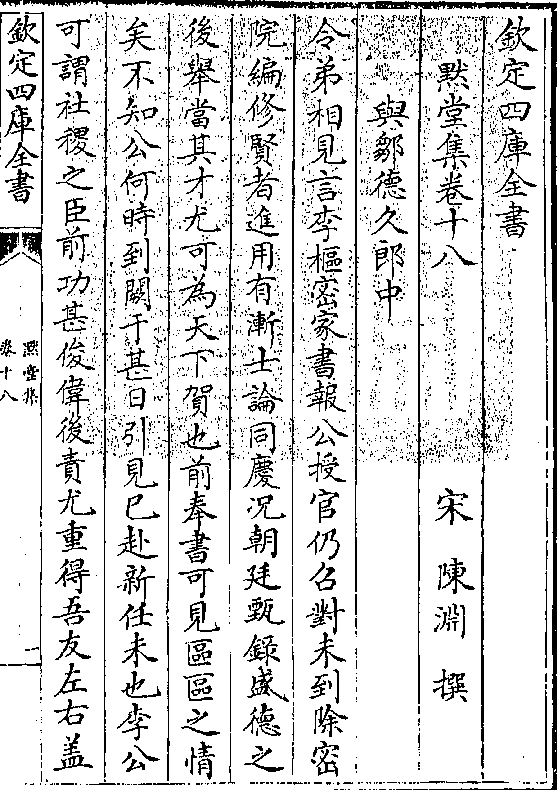 欽定四庫全書
默堂集卷十八
宋 陳淵 撰
與鄒德久郎中
令弟相見言李樞密家書報公授官仍召對未到除密
院編修賢者進用有漸士論同慶况朝廷甄錄盛德之
後舉當其才尤可為天下賀也前奉書可見區區之情
矣不知公何時到闕于甚日引見已赴新任未也李公
可謂社稷之臣前功甚俊偉後責尤重得吾友左右盖
欽定四庫全書
默堂集
卷十八
一